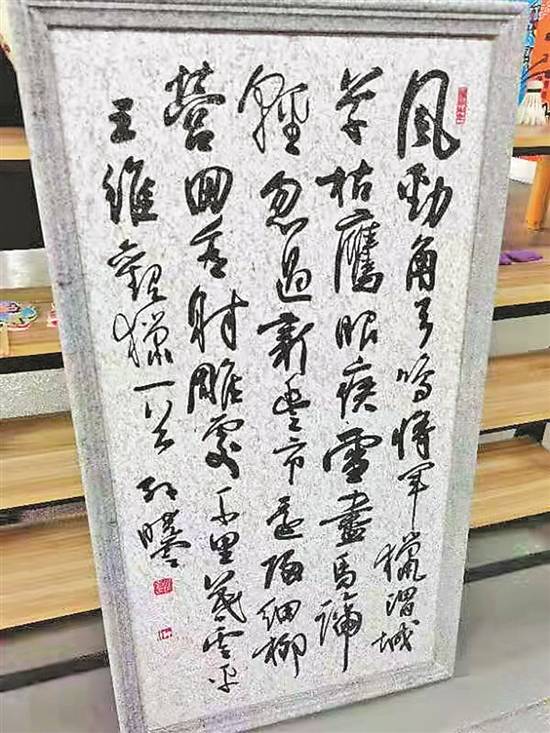 風勁角弓鸣將军獵渭城
草枯鷹眼疾雪盡馬蹄
輕忽過新豐市還歸細柳
營回看射雕處千里暮雲平
王維觀獵一首